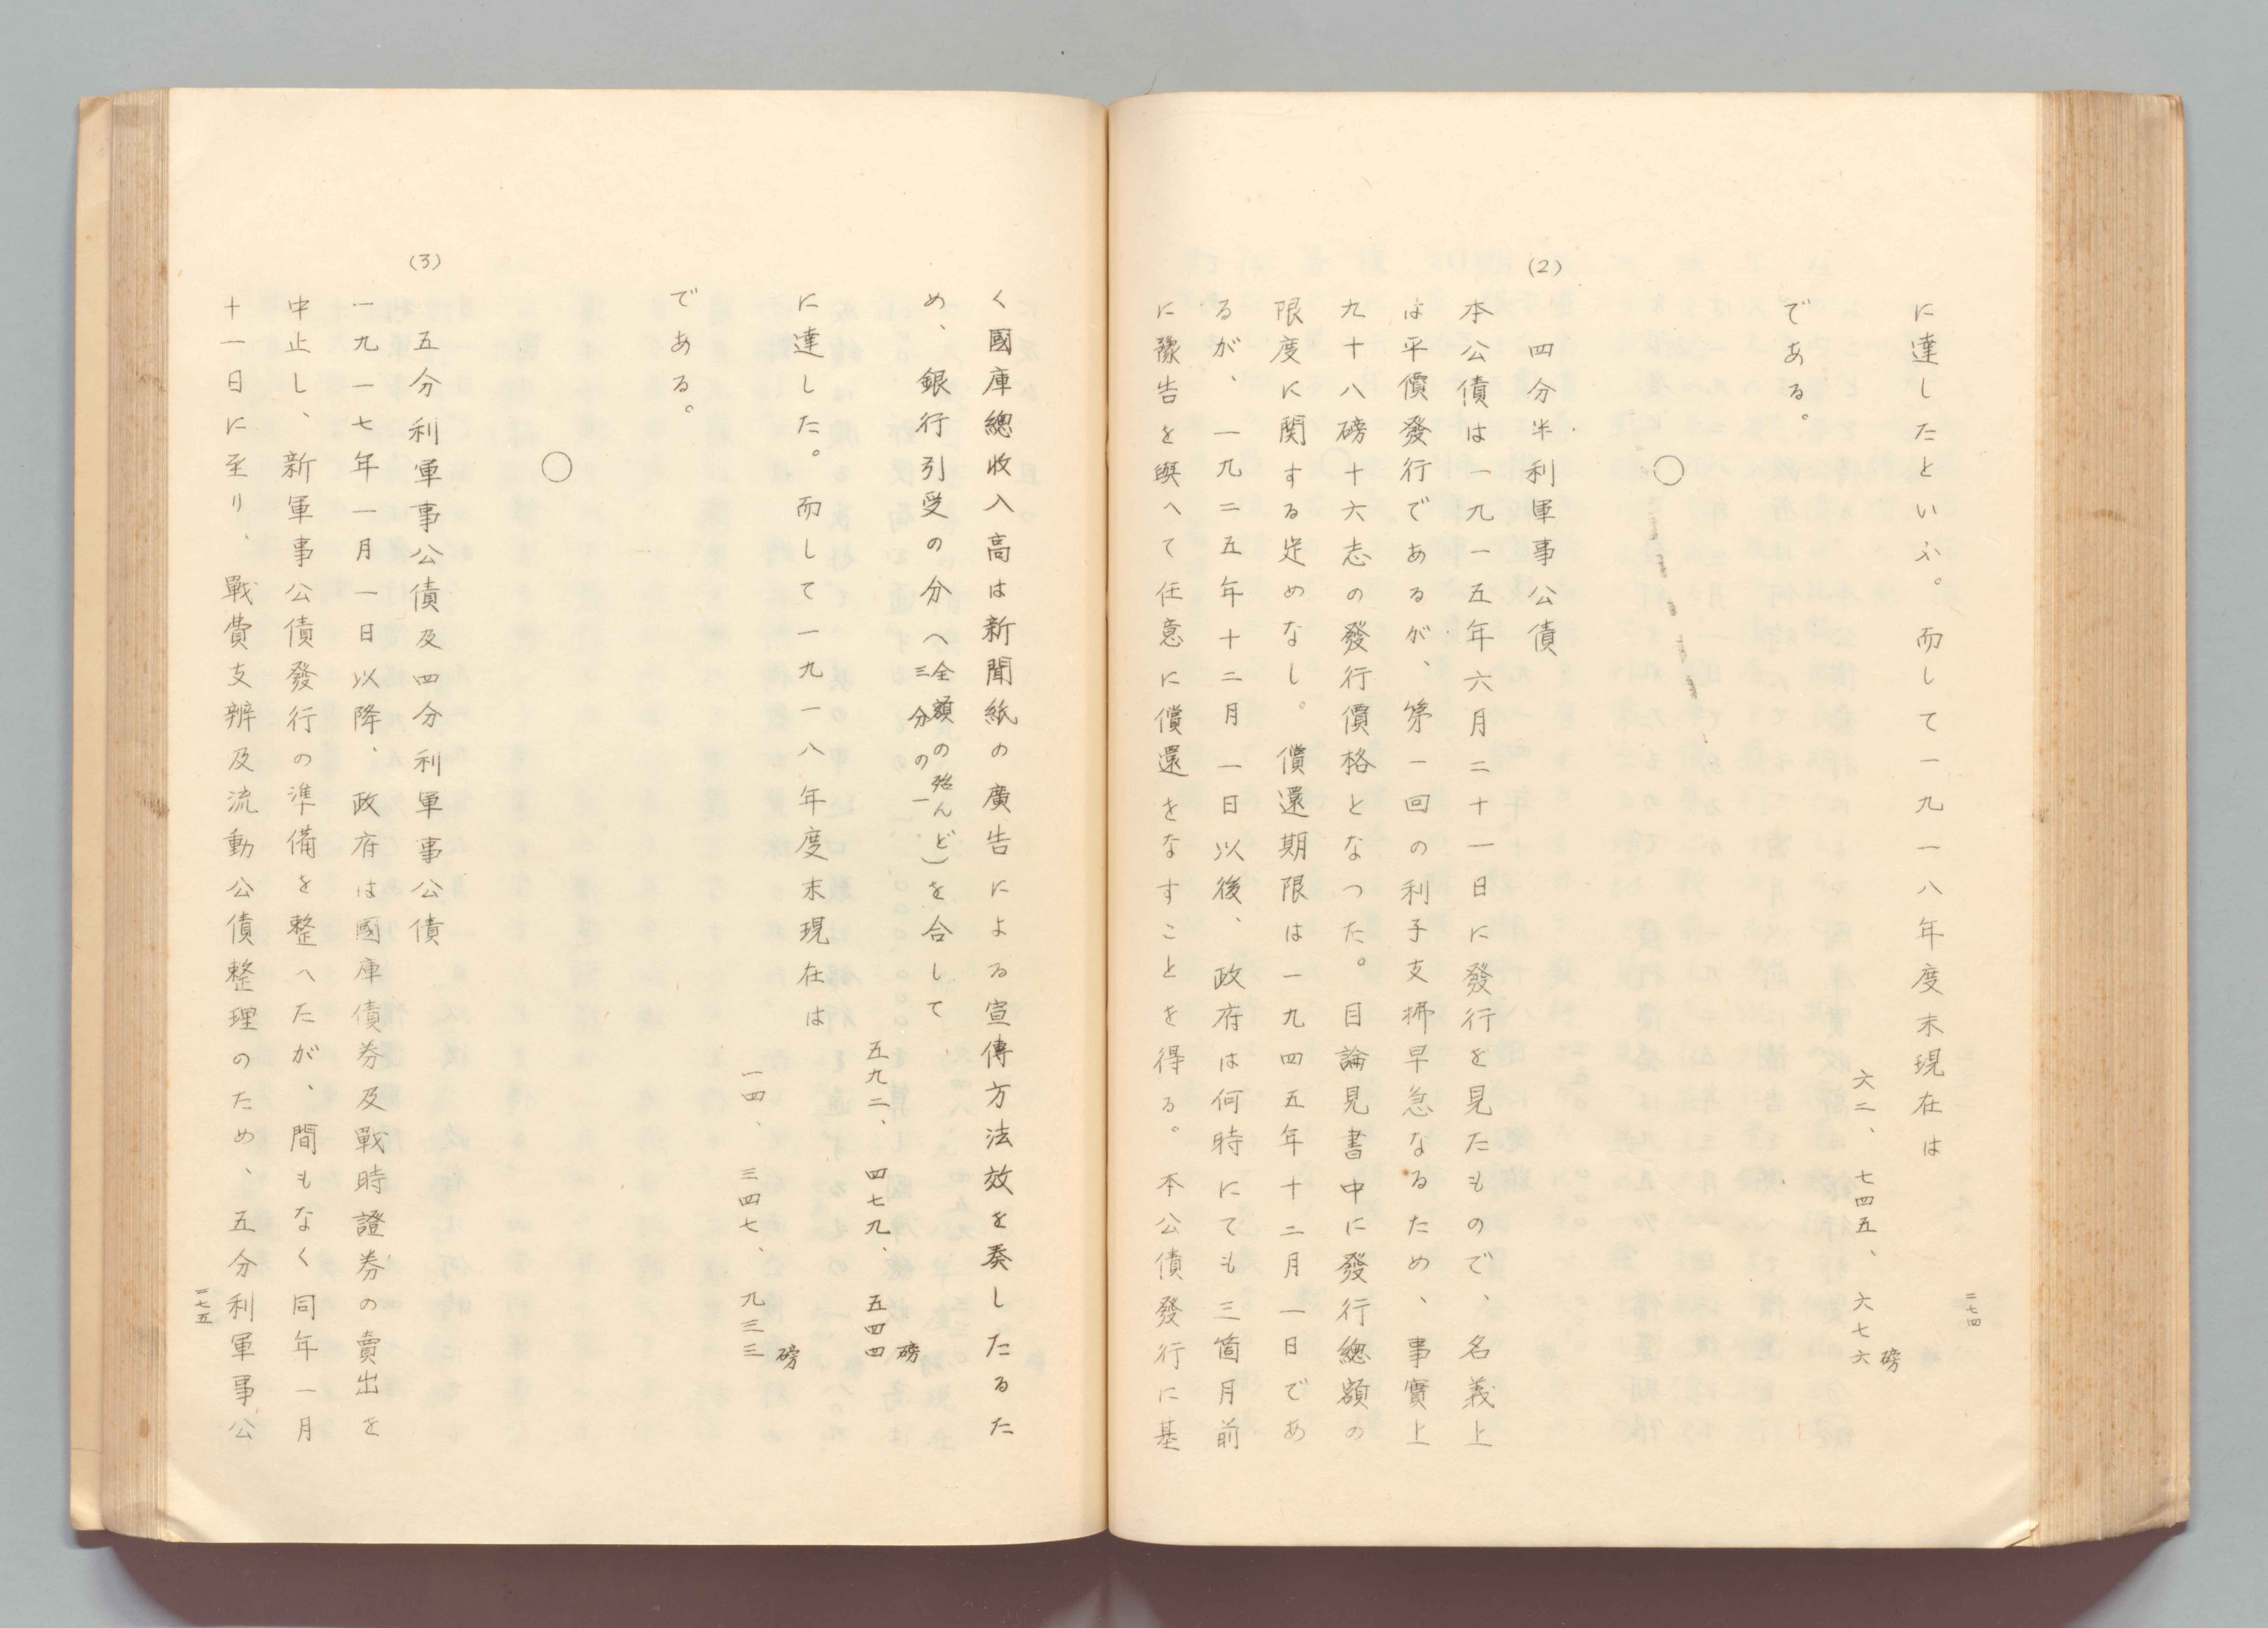 に達したといふ。而して一九一八年度末現在は
六二、七四五、六七六磅
である。
○
(2) 四分半利軍事公債
本公債は一九一五年六月二十一日に發行を見たもので、名義上
は平價發行であるが、第一回の利子支拂早急なるため、事實上
九十八磅十六志の發行價格となつた。目論見書中に發行總額の
限度に関する定めなし。償還期限は一九四五年十二月一日であ
るが、一九二五年十二月一日以後、政府は何時にても三箇月前
に豫告を與へて任意に償還をなすことを得る。本公債發行に基
二七四
く國庫總收入高は新聞紙の廣告による宣傳方法效を奏したるた
め、銀行引受の分へ全額の殆んど
三分の一)を合して
五九二、四七九、五四四磅
に達した。而して一九一八年度末現在は
一四、三四七、九三三磅
である。
○
(3) 五分利軍事公債及四分利軍事公債
一九一七年一月一日以降、政府は國庫債券及戰時證券の賣出を
中止し、新軍事公債發行の準備を整へたが、間もなく同年一月
十一日に至り、戰費支辨及流動公債整理のため、五分利軍事公
二七五